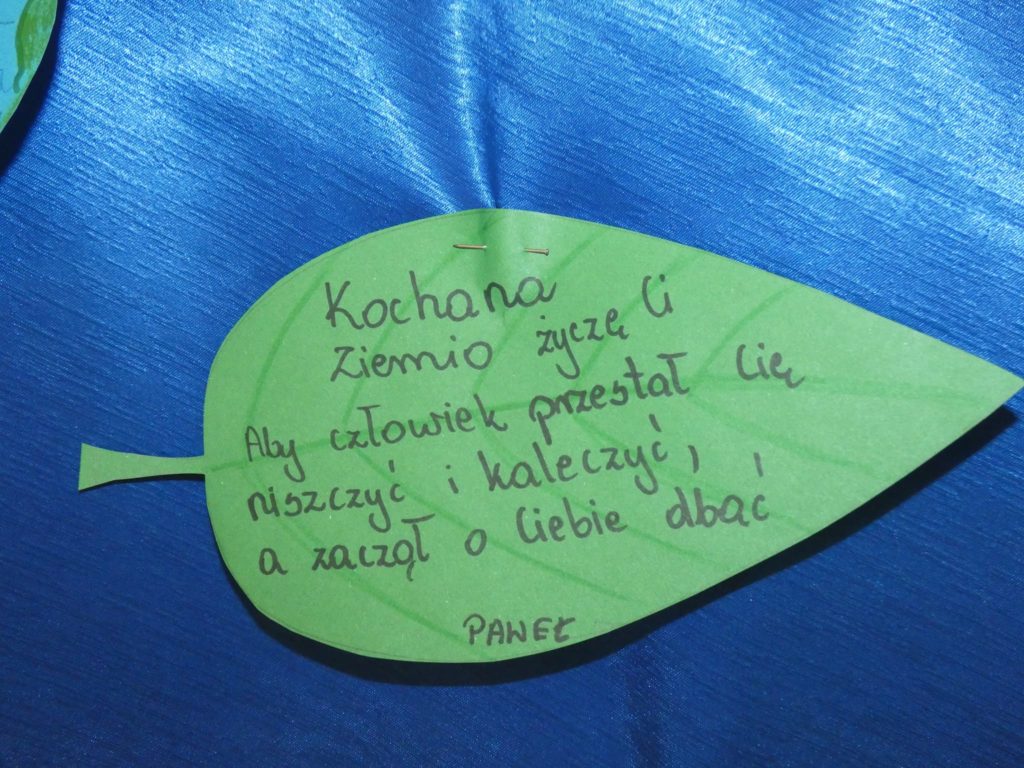 Kochana
Ziemio życzę Ci
Aby człowiek przestał Cię
niszczyć i kaleczyć,
a zaczął o Ciebie dbać
PAWEŁ